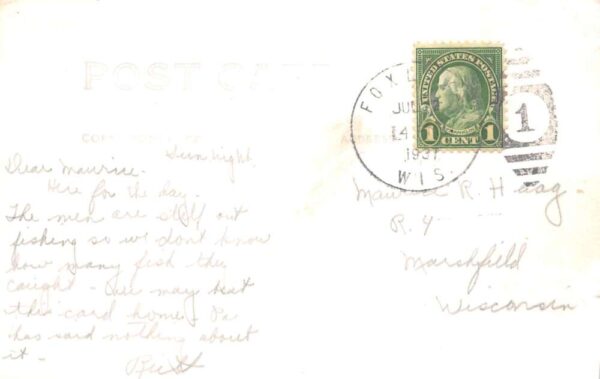 POST CARD
FOX L
JUL
14
1937
WIS.
UNITED STATES POSTAGE
FRANKLIN
1 CENT 1
1
Sun. night
Dear Maurice.
Here for the day.
The men are still out
fishing so we don't know
how many fish they
caught - We may beat
this card home. Pa
has said nothing about
it -
Maurice R. Haag
R. 4
Marshfield
Wisconsin